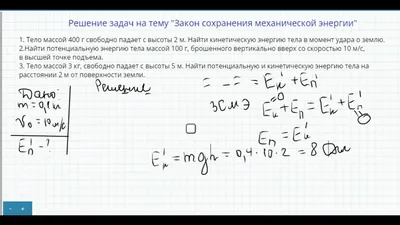 Решение задач на тему "Закон сохранения механической энергии"
1. Тело массой 400 г свободно падает с высоты 2 м. Найти кинетическую энергию тела в момент удара о землю.
2.Найти потенциальную энергию тела массой 100 г, брошенного вертикально вверх со скоростью 10 м/с,
в высшей точке подъема.
3. Тело массой 3 кг, свободно падает с высоты 5 м. Найти потенциальную и кинетическую энергию тела на
расстоянии 2 м от поверхности земли.
Дано:
m = 0,1 кг
V₀ = 10 м/с
Eп' - ?
Решение
= Eк' + Eп'
ЗСМЭ Eк=0 + Eп = Eк' + Eп'
Eп = Eк'
Eк' = mgh = 0,4 · 10 · 2 = 8 Дж